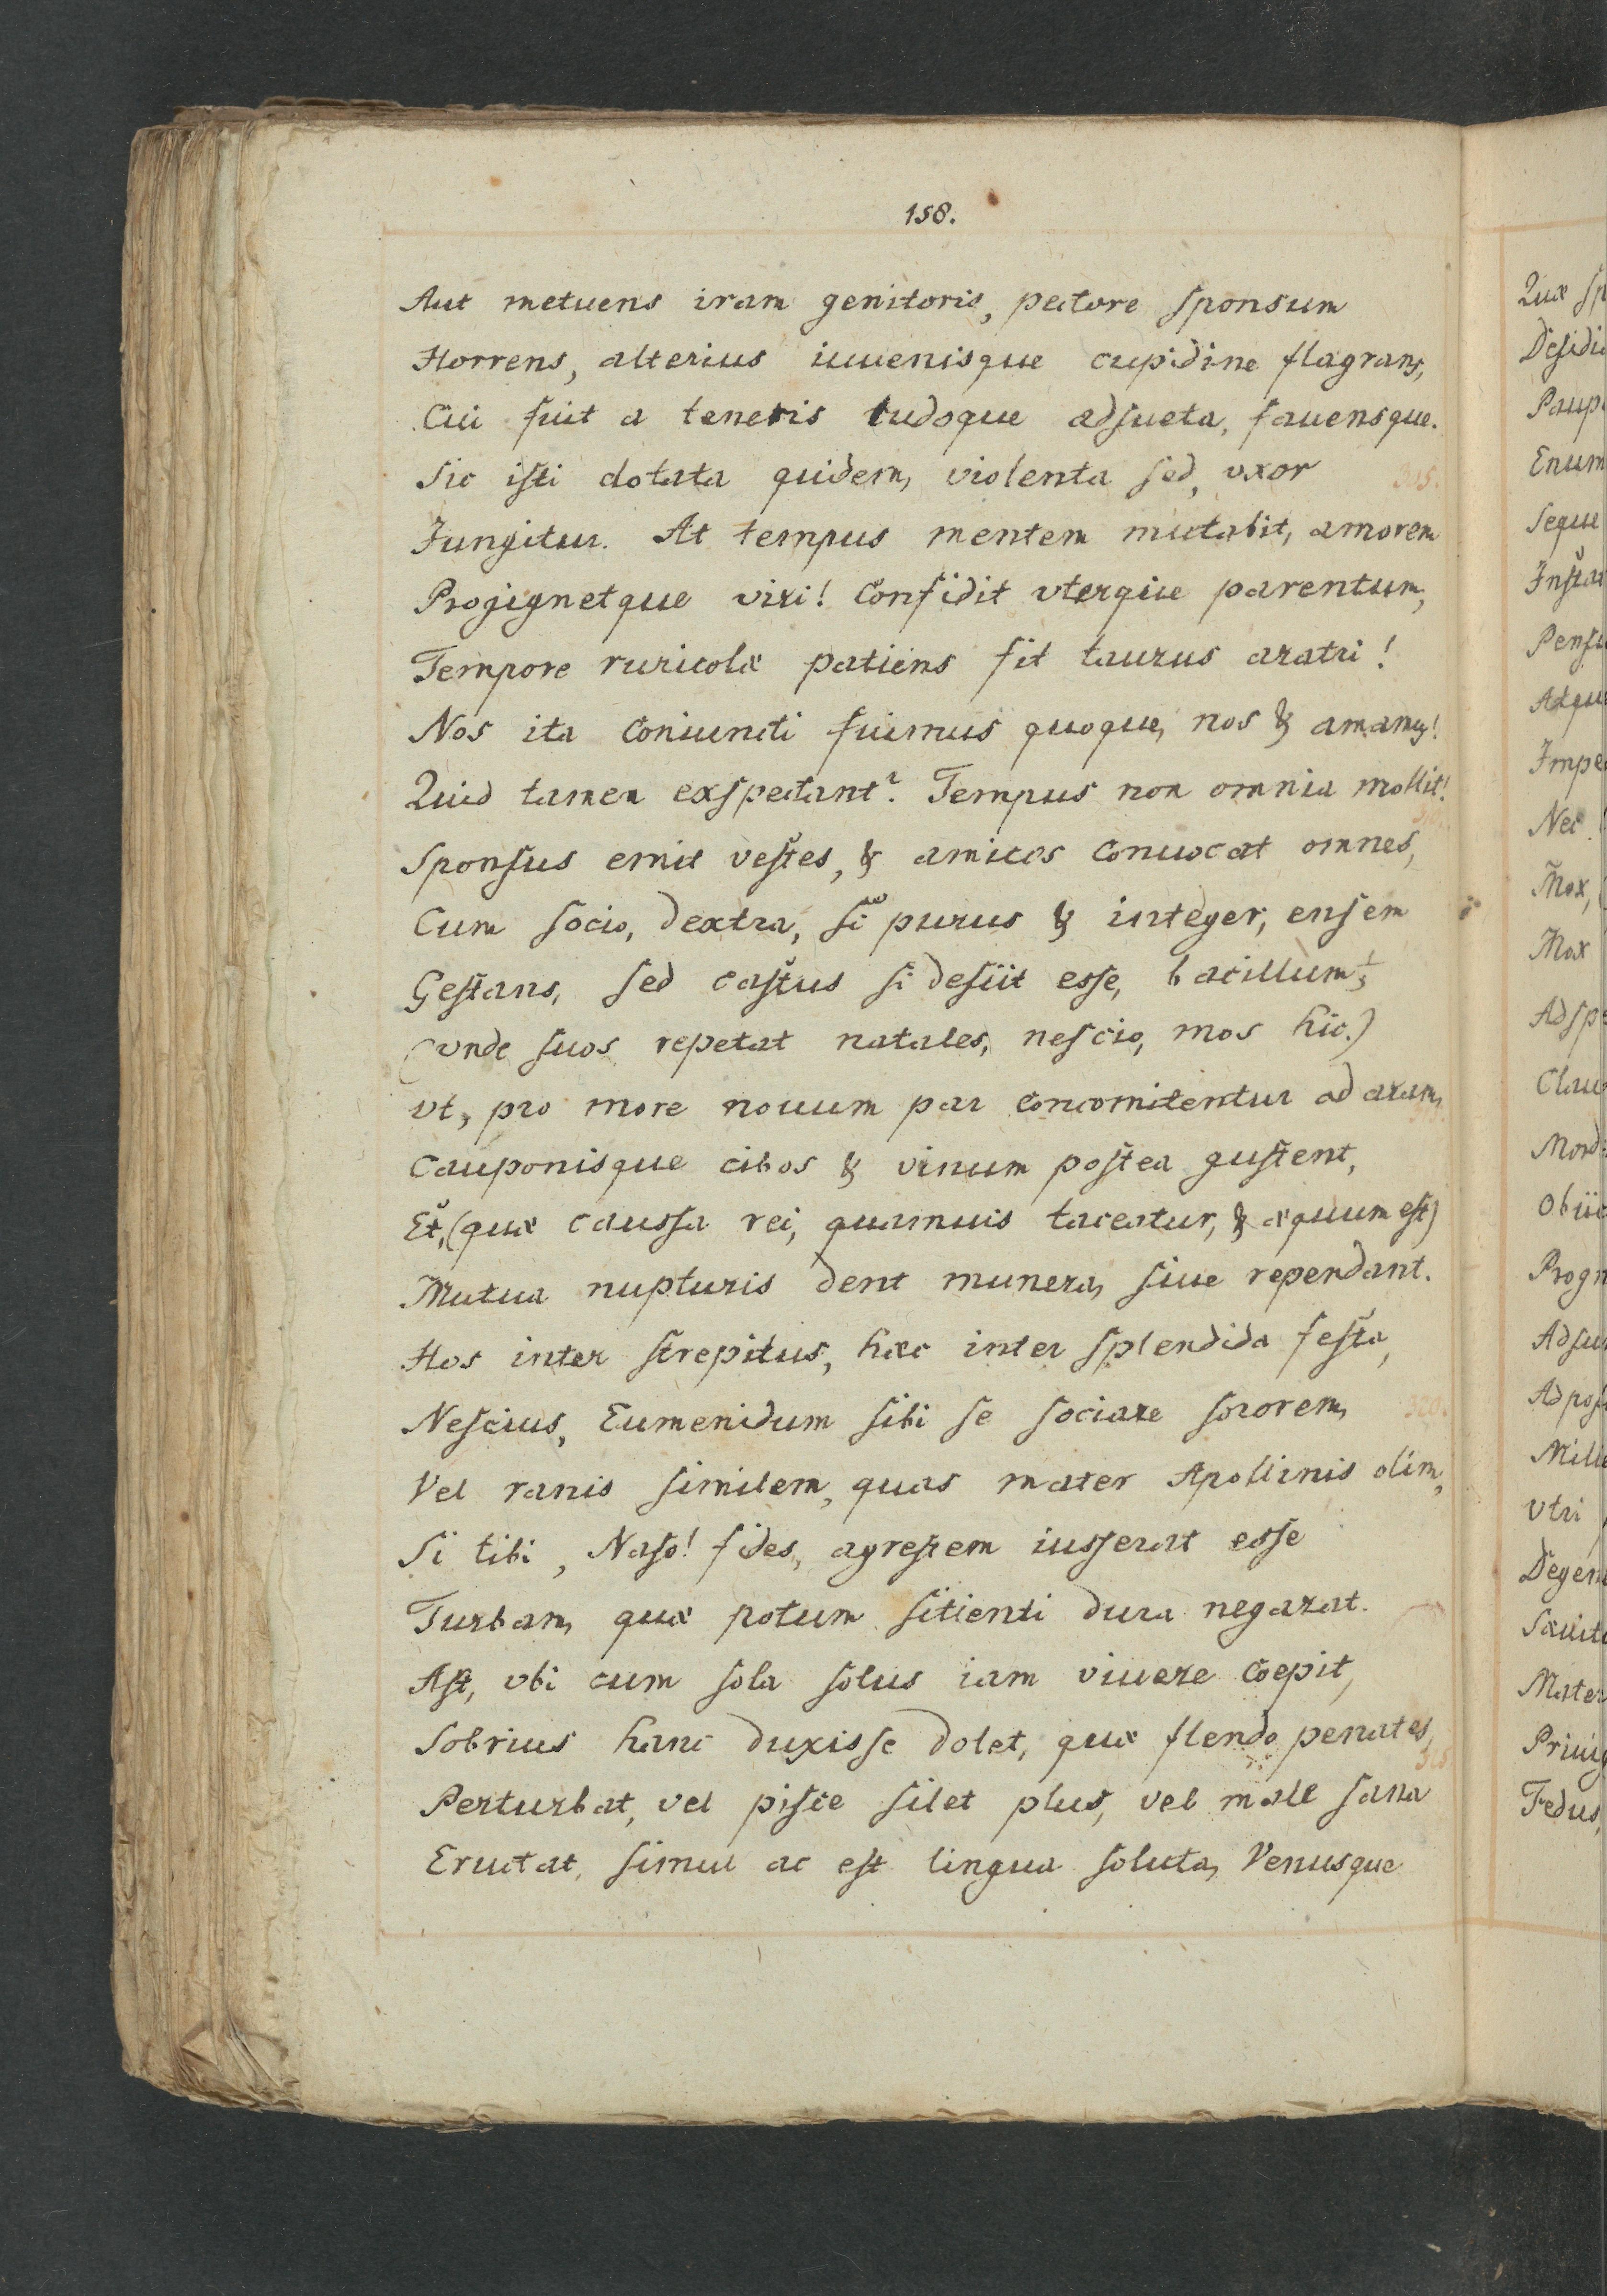 158.
Aut metuens iram genitoris, pectore sponsum
Horrens, alterius iuuenisque cupidine flagrans,
Cui fuit a teneris ludoque adsueta, fauensque.
Sic isti dotata quidem, violenta sed, vxor
305.
Jungitur. At tempus mentem mutabit, amorem
Progignetque viri! Confidit vterque parentum,
Tempore ruricolæ patiens fit taurus aratri!
Nos ita coniuncti fuimus quoque, nos & amamus!
Quid tamen exspectant? Tempus non omnia mollit!
310.
Sponsus emit vestes, & amicos conuocat omnes,
Cum socio, dextra, si purus & integer, ensem
Gestans, sed castus si desiit esse, bacillum;
(vnde suos repetat natales, nescio, mos hic.)
vt, pro more nouum par concomitentur ad aram,
Cauponisque cibos & vinum postea gustent,
Et, (quæ caussa rei, quamuis taceatur, & æquum est)
Mutua nupturis dent munera, siue rependant.
Hos inter strepitus, hæc inter splendida festa,
Nescius, Eumenidum sibi se sociare sororem,
320.
Vel ranis similem, quas mater Apollinis olim,
Si tibi, Naso! fides, agrestem iusserat esse
Turbam, quæ potum sitienti dura negarat.
Ast, vbi cum sola solus iam viuere coepit,
Sobrius hanc duxisse dolet, quæ flendo penates,
325
Perturbat, vel pisce silet plus, vel male sana
Eructat, simul ac est lingua soluta, Venusque
Quæ sp
Desidi
Paup
Enum
Seque
Instar
Pensu
Atque
Impe
Nec
Mox,
Mox
Adspe
Clau
Mord
Obiic
Progn
Adsu
Adpos
Mille
Vtri
Degen
Sæuit
Mater
Priuig
Fedus,